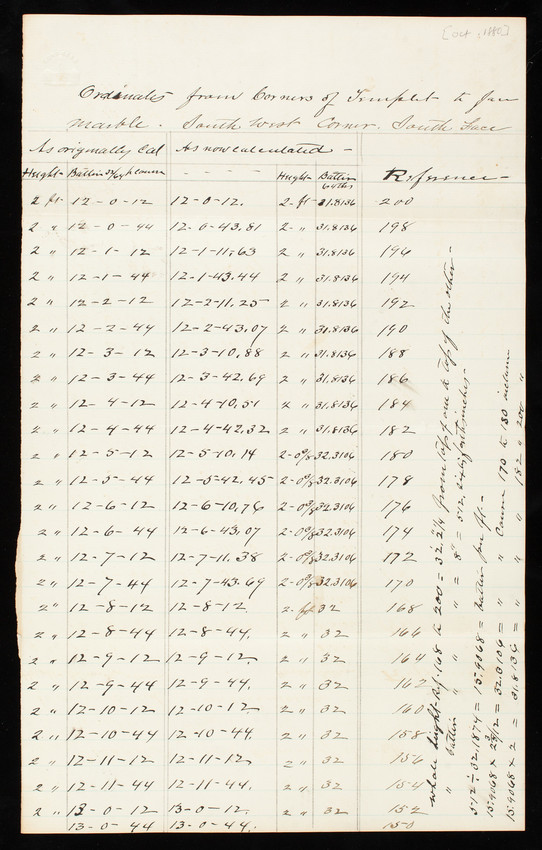 [Oct, 1880]
Ordinates from Corners of Templet to face
marble. South West Corner. South Face
As originally Cal As now calculated -
Hught Battin Reference
64ths
2 ft 12-0-12 12-0-12. 2-ft 31.8136 200
2 " 12-0-44 12-0-43,81 2-" 31.8136 198
2 " 12-1-12 12-1-11,63 2 " 31.8136 196
2 " 12-1-44 12-1-43.44 2 " 31.8136 194
2 " 12-2-12 12-2-11,25 2 " 31.8136 192
2 " 12-2-44 12-2-43,07 2 " 31.8136 190
2 " 12-3-12 12-3-10,88 2 " 31.8136 188
2 " 12-3-44 12-3-42,69 2 " 31.8136 186
2 " 12-4-12 12-4-10,51 2 " 31.8136 184
2 " 12-4-44 12-4-42,32 2 " 31.8136 182
2 " 12-5-12 12-5-10,14 2-0⅜ 32.3106 180
2 " 12-5-44 12-5-42,45 2-0⅜ 32.3106 178
2 " 12-6-12 12-6-10,76 2-0⅜ 32.3106 176
2 " 12-6-44 12-6-43,07 2-0⅜ 32.3106 174
2 " 12-7-12 12-7-11.38 2-0⅜ 32.3106 172
2 " 12-7-44 12-7-43.69 2-0⅜ 32.3106 170
2 " 12-8-12 12-8-12 2-ft 32 168
2 " 12-8-44 12-8-44. 2 " 32 166
2 " 12-9-12 12-9-12. 2 " 32 164
2 " 12-9-44 12-9-44. 2 " 32 162
2 " 12-10-12 12-10-12 2 " 32 160
2 " 12-10-44 12-10-44. 2 " 32 158
2 " 12-11-12 12-11-12 2 " 32 156
2 " 12-11-44 12-11-44. 2 " 32 154
2 " 13-0-12 13-0-12. 2 " 32 152
13-0-44 13-0-44. 150
Whole hight Ref. 168 to 200 = 32.2¼ from top of one to top of the other -
" battin " " " = 8" = 512, sixty fourths inches -
512 ÷ 32.1874 = 15.9068 = battin per ft. -
15.9068 × = 32.3106 = " " Course 170 to 180 inclusive
15.9068 × 2 = 31.8136 = " " " 182 " 200 "